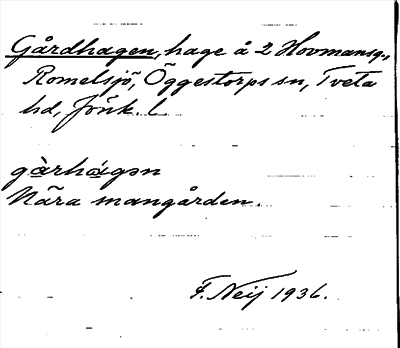 Gårdhagen, hage å 2 Hovmansg.,
Romelsjö, Öggestorps sn, Tveta
hd, Jönk. l.
gàrhá̤gən
Nära mangården.
F. Neij 1936.